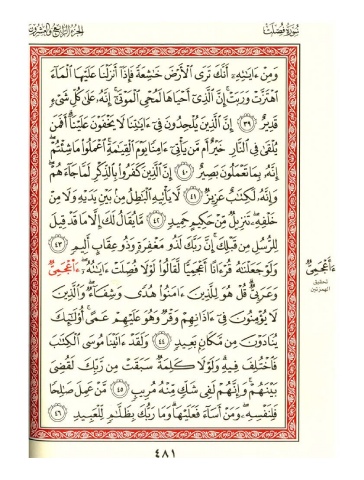 سُورَةُ فُصِّلَتْ
الجُزْءُ الرَّابِعُ وَالعِشْرُونَ
وَمِنْ ءَايَٰتِهِۦٓ أَنَّكَ تَرَى ٱلْأَرْضَ خَٰشِعَةً فَإِذَآ أَنزَلْنَا عَلَيْهَا ٱلْمَآءَ
ٱهْتَزَّتْ وَرَبَتْ إِنَّ ٱلَّذِىٓ أَحْيَاهَا لَمُحْىِ ٱلْمَوْتَىٰٓ إِنَّهُۥ عَلَىٰ كُلِّ شَىْءٍ
قَدِيرٌ ٣٩ إِنَّ ٱلَّذِينَ يُلْحِدُونَ فِىٓ ءَايَٰتِنَا لَا يَخْفَوْنَ عَلَيْنَآ أَفَمَن
يُلْقَىٰ فِى ٱلنَّارِ خَيْرٌ أَم مَّن يَأْتِىٓ ءَامِنًا يَوْمَ ٱلْقِيَٰمَةِ ٱعْمَلُوا۟ مَا شِئْتُمْ
إِنَّهُۥ بِمَا تَعْمَلُونَ بَصِيرٌ ٤٠ إِنَّ ٱلَّذِينَ كَفَرُوا۟ بِٱلذِّكْرِ لَمَّا جَآءَهُمْ
وَإِنَّهُۥ لَكِتَٰبٌ عَزِيزٌ ٤١ لَّا يَأْتِيهِ ٱلْبَٰطِلُ مِنۢ بَيْنِ يَدَيْهِ وَلَا مِنْ
خَلْفِهِۦ تَنزِيلٌ مِّنْ حَكِيمٍ حَمِيدٍ ٤٢ مَّا يُقَالُ لَكَ إِلَّا مَا قَدْ قِيلَ
لِلرُّسُلِ مِن قَبْلِكَ إِنَّ رَبَّكَ لَذُو مَغْفِرَةٍ وَذُو عِقَابٍ أَلِيمٍ ٤٣
وَلَوْ جَعَلْنَٰهُ قُرْءَانًا أَعْجَمِيًّا لَّقَالُوا۟ لَوْلَا فُصِّلَتْ ءَايَٰتُهُۥٓ ءَا۬عْجَمِىٌّ
وَعَرَبِىٌّ قُلْ هُوَ لِلَّذِينَ ءَامَنُوا۟ هُدًى وَشِفَآءٌ وَٱلَّذِينَ
لَا يُؤْمِنُونَ فِىٓ ءَاذَانِهِمْ وَقْرٌ وَهُوَ عَلَيْهِمْ عَمًى أُو۟لَٰٓئِكَ
يُنَادَوْنَ مِن مَّكَانٍۭ بَعِيدٍ ٤٤ وَلَقَدْ ءَاتَيْنَا مُوسَى ٱلْكِتَٰبَ
فَٱخْتُلِفَ فِيهِ وَلَوْلَا كَلِمَةٌ سَبَقَتْ مِن رَّبِّكَ لَقُضِىَ
بَيْنَهُمْ وَإِنَّهُمْ لَفِى شَكٍّ مِّنْهُ مُرِيبٍ ٤٥ مَّنْ عَمِلَ صَٰلِحًا
فَلِنَفْسِهِۦ وَمَنْ أَسَآءَ فَعَلَيْهَا وَمَا رَبُّكَ بِظَلَّٰمٍ لِّلْعَبِيدِ ٤٦
ءَأَعْجَمِىٌّ
تحقيق
الهمزتين
٤٨١